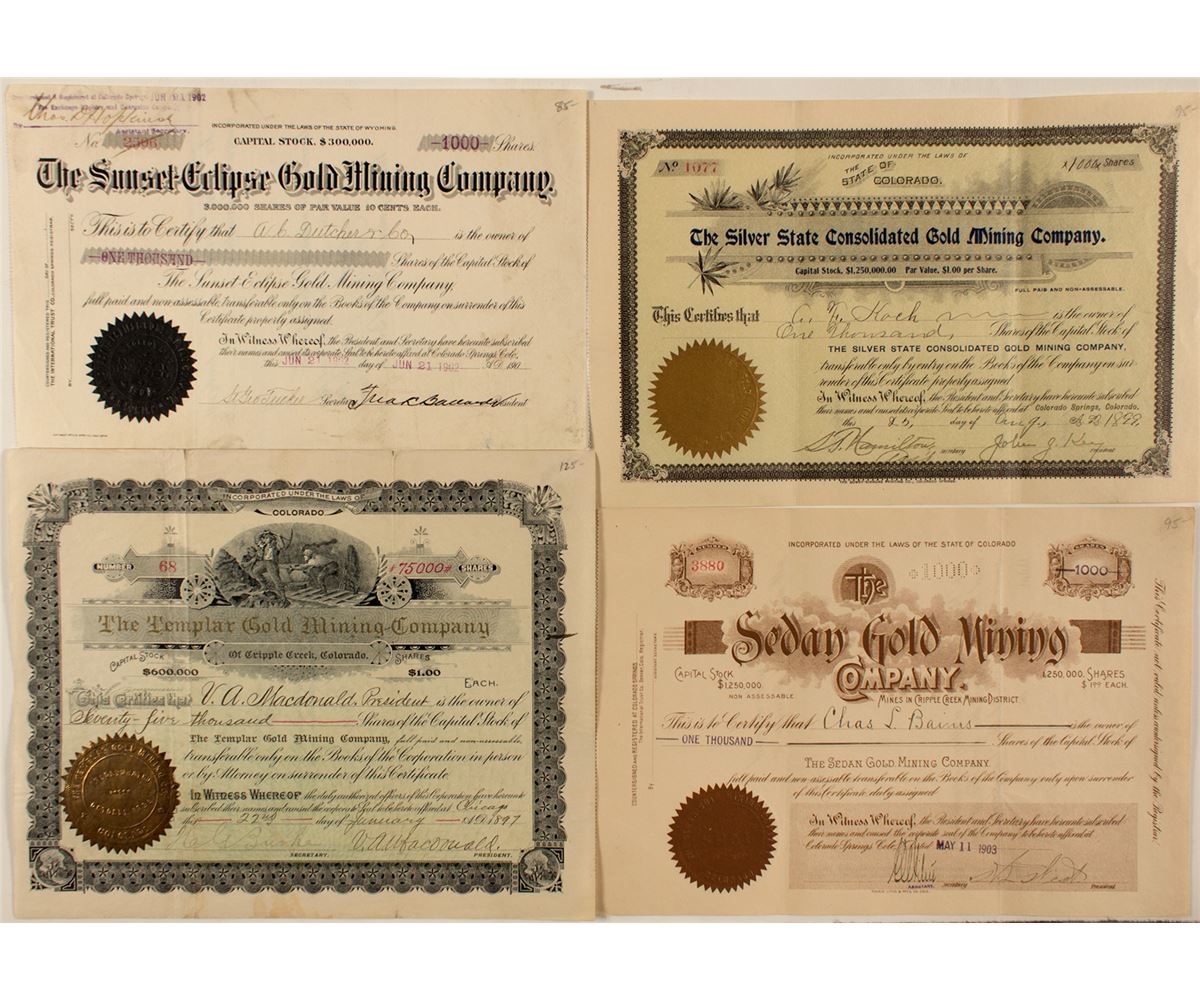 JUN 21 1902
85-
Chas. D. Hopkins
INCORPORATED UNDER THE LAWS OF THE STATE OF WYOMING.
No. 2596 CAPITAL STOCK, $300,000. -1000- Shares.
The Sunset-Eclipse Gold Mining Company.
3,000,000 SHARES OF PAR VALUE 10 CENTS EACH.
This is to Certify that A C Dutcher & Co, is the owner of
-ONE THOUSAND- Shares of the Capital Stock of
The Sunset-Eclipse Gold Mining Company,
full paid and non-assessable, transferable only on the Books of the Company on surrender of this
Certificate properly assigned.
In Witness Whereof, the President and Secretary have hereunto subscribed
their names and caused its corporate Seal to be hereto affixed at Colorado Springs, Colo,
this JUN 21 1902 day of JUN 21 1902 A.D. 190
Secretary President
COUNTERSIGNED AND REGISTERED THIS DAY OF
THE INTERNATIONAL TRUST CO., COLORADO SPRINGS, REGISTRAR.
BY
95-
INCORPORATED UNDER THE LAWS OF
THE STATE OF
COLORADO.
No 1077
x1000x Shares
The Silver State Consolidated Gold Mining Company.
Capital Stock, $1,250,000.00 Par Value, $1.00 per Share.
FULL PAID AND NON-ASSESSABLE.
This Certifies that A. F. Koch is the owner of
One Thousand, Shares of the Capital Stock of
THE SILVER STATE CONSOLIDATED GOLD MINING COMPANY,
transferable only by entry on the Books of the Company on sur-
render of this Certificate properly assigned
In Witness Whereof, the President and Secretary have hereunto subscribed
their names and caused its corporate Seal to be hereto affixed at Colorado Springs, Colorado,
this 25, day of Aug. A.D. 1899.
Hamilton, secretary John J. Key president
125-
INCORPORATED UNDER THE LAWS OF
COLORADO
NUMBER 68 75000 SHARES
The Templar Gold Mining Company
Of Cripple Creek, Colorado.
CAPITAL STOCK $600.000 SHARES $1.00 EACH.
This Certifies that V. A. Macdonald, President is the owner of
Seventy-five thousand Shares of the Capital Stock of
The Templar Gold Mining Company, full paid and non-assessable,
transferable only on the Books of the Corporation in person
or by Attorney on surrender of this Certificate
IN WITNESS WHEREOF the duly authorized officers of this Corporation have hereunto
subscribed their names and caused the corporate Seal to be hereto affixed at Chicago
this 22nd day of January A.D. 1897
SECRETARY. V. A. Macdonald. PRESIDENT.
95-
INCORPORATED UNDER THE LAWS OF THE STATE OF COLORADO
NUMBER
3880
1000
SHARES
-1000-
The
Sedan Gold Mining
COMPANY.
CAPITAL STOCK
$1,250,000.
NON ASSESSABLE
1,250,000. SHARES
$1.00 EACH.
MINES IN CRIPPLE CREEK MINING DISTRICT.
This is to Certify that Chas L. Bains is the owner of
ONE THOUSAND Shares of the Capital Stock of
THE SEDAN GOLD MINING COMPANY.
full paid and non-assessable transferable on the Books of the Company only upon surrender
of this Certificate duly assigned.
In Witness Whereof, the President and Secretary have hereunto subscribed
their names and caused the corporate seal of the Company to be hereto affixed at
Colorado Springs, Colo., dated MAY 11 1903
ASSISTANT. Secretary President
COUNTERSIGNED AND REGISTERED AT COLORADO SPRINGS
The International Trust Co. Denver, Colo. Registrar.
By
This Certificate not valid unless countersigned by the Registrar.